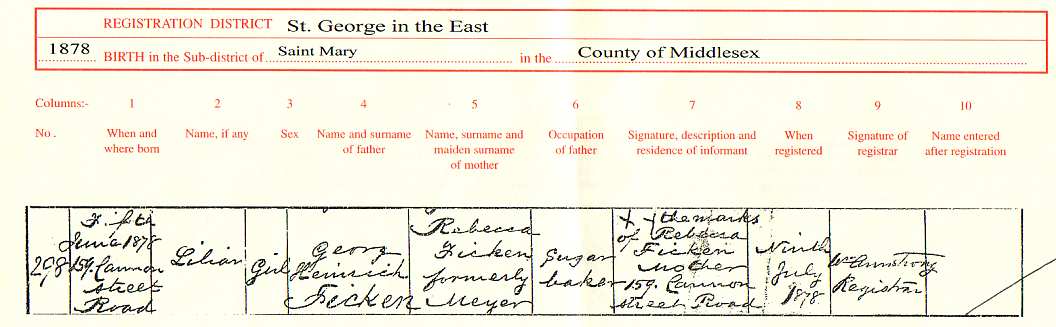 REGISTRATION DISTRICT St. George in the East
1878 BIRTH in the Sub-district of Saint Mary in the County of Middlesex
Columns:- 1 2 3 4 5 6 7 8 9 10
No. When and where born Name, if any Sex Name and surname of father Name, surname and maiden surname of mother Occupation of father Signature, description and residence of informant When registered Signature of registrar Name entered after registration
298
Fifth
June 1878
159. Cannon
street
Road
Lilian
Girl
Georg
Heinrich
Ficken
Rebecca
Ficken
formerly
Meyer
Sugar
baker
X the marks
of Rebecca
Ficken
Mother
159. Cannon
street Road
Ninth
July
1878
Wm Armstrong
Registrar